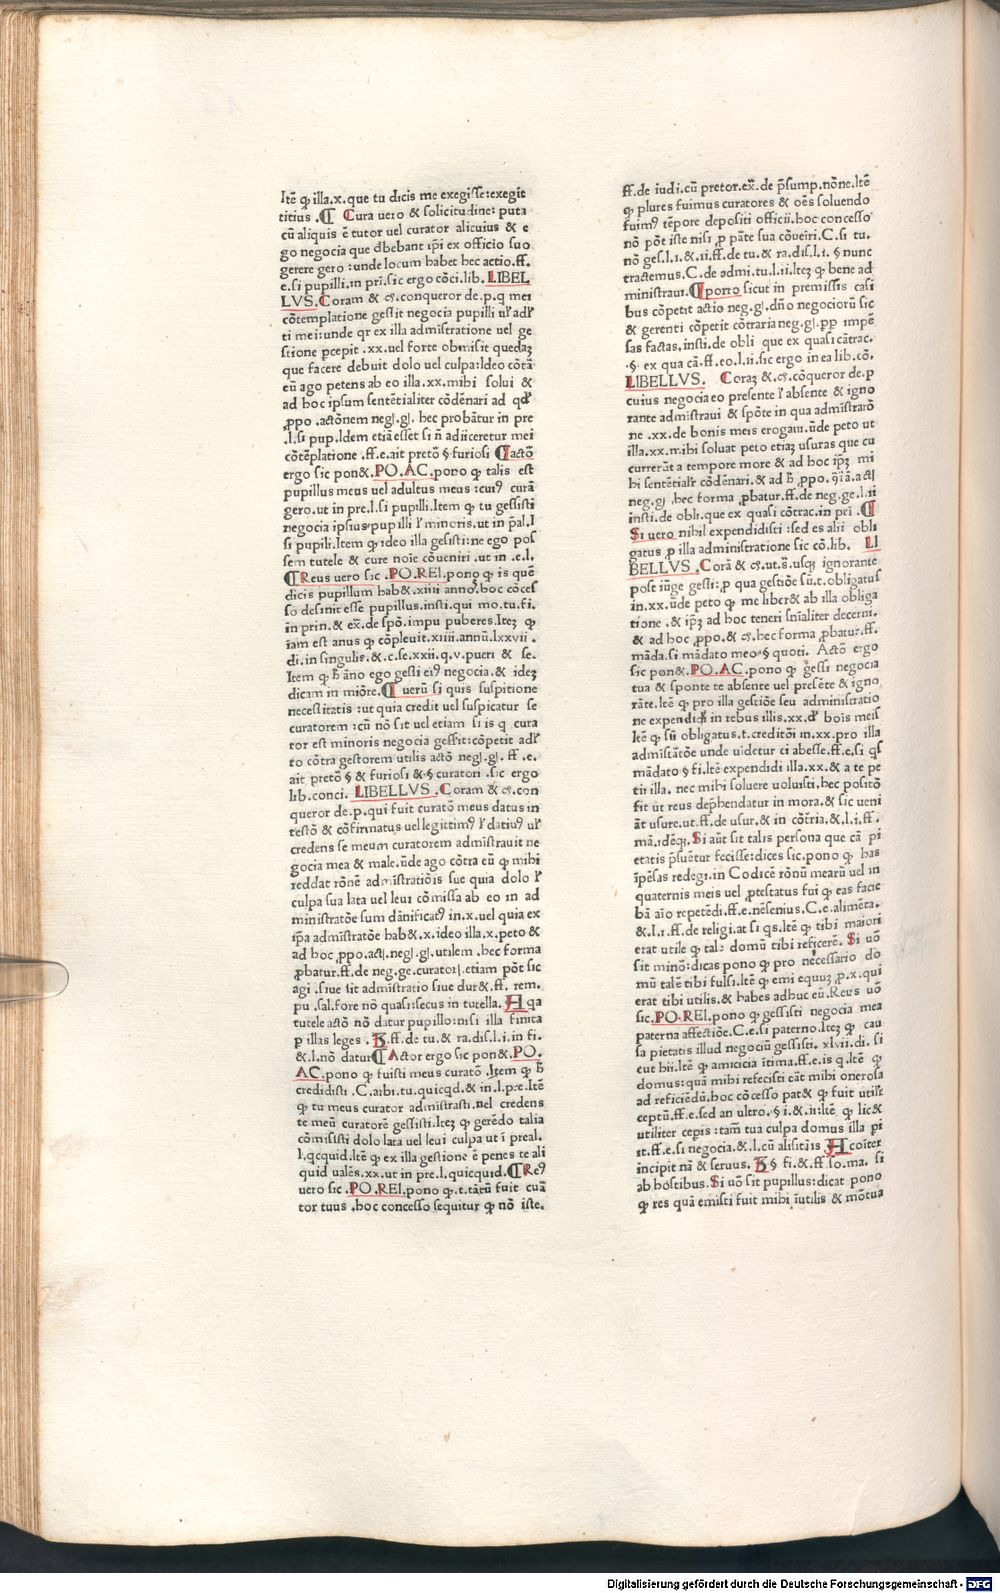 Itē ꝙ illa.x.que tu dicis me exegisse:exegit
titius .¶ Cura uero & solicitudine: puta
cū aliquis ē tutor uel curator alicuius & e
go negocia que dbebant ip̄i ex officio suo
gerere gero :unde locum habet hec actio.ff.
e.si pupilli.in pri.sic ergo cōci.lib. LIBEL
LVS.Coram & cꝫ.conqueror de.p.q mei
cōtemplatione gessit negocia pupilli ul̕ adl̕
ti mei:unde qr ex illa admīstratione uel ge
stione pcepit .xx.uel forte obmisit quedaꝫ
que facere debuit dolo uel culpa:Ideo cōtā
eū ago petens ab eo illa.xx.mihi solui &
ad hoc ipsum sentētialiter cōdēnari ad qd̕
ꝓpo .actōnem negl.gl. hec probātur in pre
.l.si pup.Idem etiā esset si n̄ adiiceretur mei
cōtēplatione .ff.e.ait pretō § furiosi ¶actō
ergo sic pon&.PO.AC.pono ꝙ talis est
pupillus meus uel adultus meus :cuiꝰ curā
gero.ut in pre.l.si pupilli.Item ꝙ tu gessisti
negocia ipsius pupilli l̕ minoris.ut in p̄al.l
si pupili.Item ꝙ ideo illa gesisti:ne ego pos
sem tutele & cure noīe cōueniri .ut in .e.l.
¶Reus uero sic .PO.REI.pono ꝙ is quē
dicis pupillum hab&.xiiii annoꝭ.hoc cōces
so desinit esse pupillus.insti.qui mo.tu.fi.
in prin.& ex̄.de spō.impu puberes.Iteꝫ ꝙ
iam est anus ꝙ cōpleuit.xiiii.annū.lxxvii .
di.in singulis.&.c.se.xxii.q.v.pueri & se.
Item ꝙ h̄ āno ego gesti eiꝰ negocia.& ideꝫ
dicam in miōre.¶ uerū si quis suspitione
necessitatis :ut quia credit uel suspicatur se
curatorem :cū nō sit uel etiam si is q cura
tor est minoris negocia gessit:cōpetit adl̕
to cōtra gestorem utilis actō negl.gl. ff .e.
ait pretō § & furiosi &.§ curatori .sic ergo
lib.conci. LIBELLVS .Coram & cꝫ.con
queror de.p.qui fuit curatō meus datus in
testō & cōfirmatus uel legittimꝰ l̕ datiuꝰ ul̕
credens se meum curatorem admistrauit ne
gocia mea & male.ūde ago cōtra eū ꝙ mihi
reddat rōnē admīstratiōis sue quia dolo l̕
culpa sua lata uel leui cōmissa ab eo in ad
ministratōe sum dānificatꝰ in.x.uel quia ex
ip̄a admīstratōe hab&.x.ideo illa.x.peto &
ad hoc ꝓpo.actl.negl.gl.utilem .hec forma
ꝓbatur.ff.de neg.ge.curatorl.etiam pōt sic
agi .siue sit admistratio siue dur&.ff. rem.
pu .sal.fore nō quasi:secus in tutella. Aqa
tutele actō nō datur pupillo:nisi illa finita
p illas leges . B.ff.de tu.& ra.dis.l.i.in fi.
&.l.nō datur¶Actor ergo sic pon&.PO.
AC.pono ꝙ fuisti meus curatō .Item ꝙ h̄
credidisti .C.aibi.tu.quicqd.& in.l.pre.Itē
ꝙ tu meus curator admistrasti.nel credens
te meū curatorē gessisti.Iteꝫ ꝙ gerēdo talia
cōmisisti dolo lata uel leui culpa ut ī preal.
l.qcquid.Itē ꝙ ex illa gestione ē penes te ali
quid ualēs.xx.ut in pre.l.quicquid.¶Reꝰ
uero sic .PO.REI.pono ꝙ.t.tātū fuit cuā
tor tuus .hoc concesso sequitur ꝙ nō iste.
ff.de iudi.cū pretor.ex̄.de p̄sump.nōne.Itē
ꝙ plures fuimus curatores & oēs soluendo
fuimꝰ tēpore depositi officii.hoc concesso
nō pōt iste nisi ꝓ pāte sua cōueiri.C.si tu.
nō ges.l.i.&.ii.ff.de tu.& ra.dis.l.i. § nunc
tractemus.C.de admi.tu.l.ii.Iteꝫ ꝙ bene ad
ministraui.¶porro sicut in premissis casi
bus cōpetit actio neg.gl.dn̄o negociorū sic
& gerenti cōpetit cōtraria neg.gl.ꝓp impē
sas factas.insti.de obli que ex quasi cātrac.
.§ ex qua cā.ff.eo.l.ii.sic ergo in ea lib.cō.
LIBELLVS. Coraꝫ &.cꝫ.cōqueror de.p
cuius negocia eo presente l̕ absente & igno
rante admistraui & spōte in qua admīstrarō
ne .xx.de bonis meis erogaui.ūde peto ut
illa.xx.mihi soluat peto etiaꝫ usuras que cu
currerāt a tempore more & ad hoc ipꝫ mi
hi sentētialr̕ cōdēnari.& ad h̄ ꝓpo.ꝯīā.actl
neg.gl .hec forma ꝓbatur.ff.de neg.ge.l.ii
insti.de obli.que ex quasi cōtrac.in pri .¶
Si uero nihil expendidisti :sed es alii obli
gatus p illa administratione sic cō.lib. LI
BELLVS .Corā & cꝫ.ut.s̄.usqꝫ ignorante
post iūge gessi: ꝓ qua gestiōe sū.t.obligatus
in.xx.ūde peto ꝙ me liber& ab illa obliga
tione .& ipꝫ ad hoc teneri sn̄ialiter decerni.
& ad hoc ꝓpo.& cꝫ.hec forma ꝓbatur.ff.
māda.si mādato meo § quoti. Actō ergo
sic pon&.PO.AC.pono ꝙ gessi negocia
tua & sponte te absente uel presēte & igno
rāte.Itē ꝙ pro illa gestiōe seu administratio
ne expendidi in rebus illis.xx.d̕ bois meis
Itē ꝙ sū obligatus.t.creditōi in.xx.pro illa
admistātōe unde uidetur ci abesse.ff.e.si qs
mādato § fi.Itē expendidi illa.xx.& a te pe
tii illa. nec mihi soluere uoluisti.hec positō
fit ut reus dephendatur in mora.& sic ueni
āt usure.ut.ff.de usur.& in cōtria.&.l.i.ff.
mā.idēqꝫ.Si aūt sit talis persona que cā pi
etatis p̄suētur fecisse:dices sic.pono ꝙ has
īpēsas redegi.in Codicē rōnū mearū uel in
quaternis meis uel ꝓtestatus fui ꝙ eas facie
bā aīo repetēdi.ff.e.nēsenius.C.e.alimēta.
&.l.i.ff.de religi.at si qs.Itē ꝙ tibi maiori
erat utile ꝙ tale domū tibi reficerē. Si uō
sit minō:dicas pono ꝙ pro necessario do
mū talē tibi fulsi.Itē ꝙ emi equuꝫ ꝓ.x.qui
erat tibi utilis.& habes adhuc eū.Reus uō
sic.PO.REI.pono ꝙ gessisti negocia mea
paterna affectiōe.C.e.si paterno.Iteꝫ ꝙ cau
sa pietatis illud negociū gessisti. xlvii.di. si
cut hii.Itē ꝙ amicicia ītima.ff.e.is q.Itē ꝙ
domus:quā mihi refecisti cāt mihi onerosa
ad reficiēdū.hoc cōcesso pat& ꝙ fuit utilr̕
ceptū.ff.e.sed an ultro.§ i.& .ii:Itē. ꝙ lic&
utiliter cepis :tam̄ tua culpa domus illa pi
it.ff.e.si negocia.&.l.cū alisitāis Acoīter
incipit nā & seruus. B§ fi.& ff so.ma. si
ab hostibus.Si uō sit pupillus:dicat pono
ꝙ res quā emisti fuit mihi īutilis & mōtua
Digitalisierung gefördert durch die Deutsche Forschungsgemeinschaft - DFG